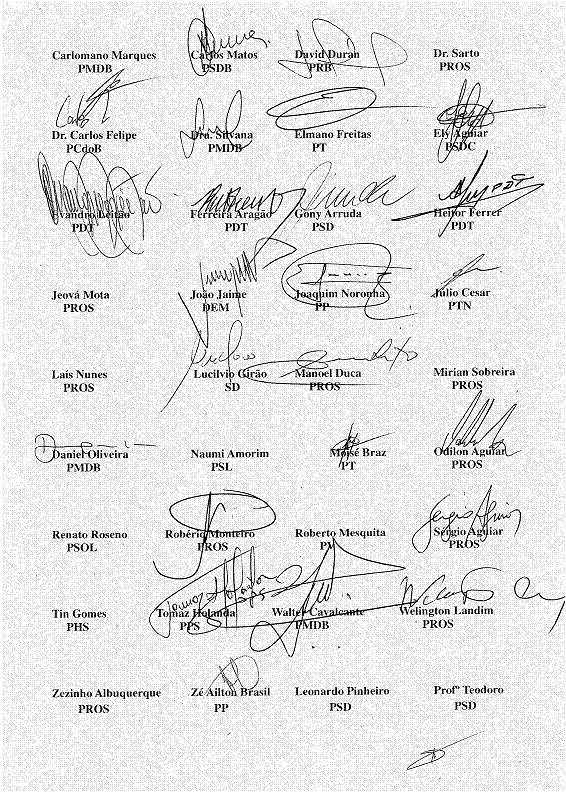 Carlomano Marques Carlos Matos David Duran Dr. Sarto
PMDB PSDB PRB PROS
Dr. Carlos Felipe Dra. Silvana Elmano Freitas Ely Aguiar
PCdoB PMDB PT PSDC
Evandro Leitão Ferreira Aragão Gony Arruda Heitor Ferrer
PDT PDT PSD PDT
Jeová Mota João Jaime Joaquim Noronha Júlio Cesar
PROS DEM PP PTN
Laís Nunes Lucilvio Girão Manoel Duca Mirian Sobreira
PROS SD PROS PROS
Daniel Oliveira Naumi Amorim Moisé Braz Odilon Aguiar
PMDB PSL PT PROS
Renato Roseno Robério Monteiro Roberto Mesquita Sérgio Aguiar
PSOL PROS PV PROS
Tin Gomes Tomaz Holanda Walter Cavalcante Welington Landim
PHS PPS PMDB PROS
Zezinho Albuquerque Zé Ailton Brasil Leonardo Pinheiro Profº Teodoro
PROS PP PSD PSD